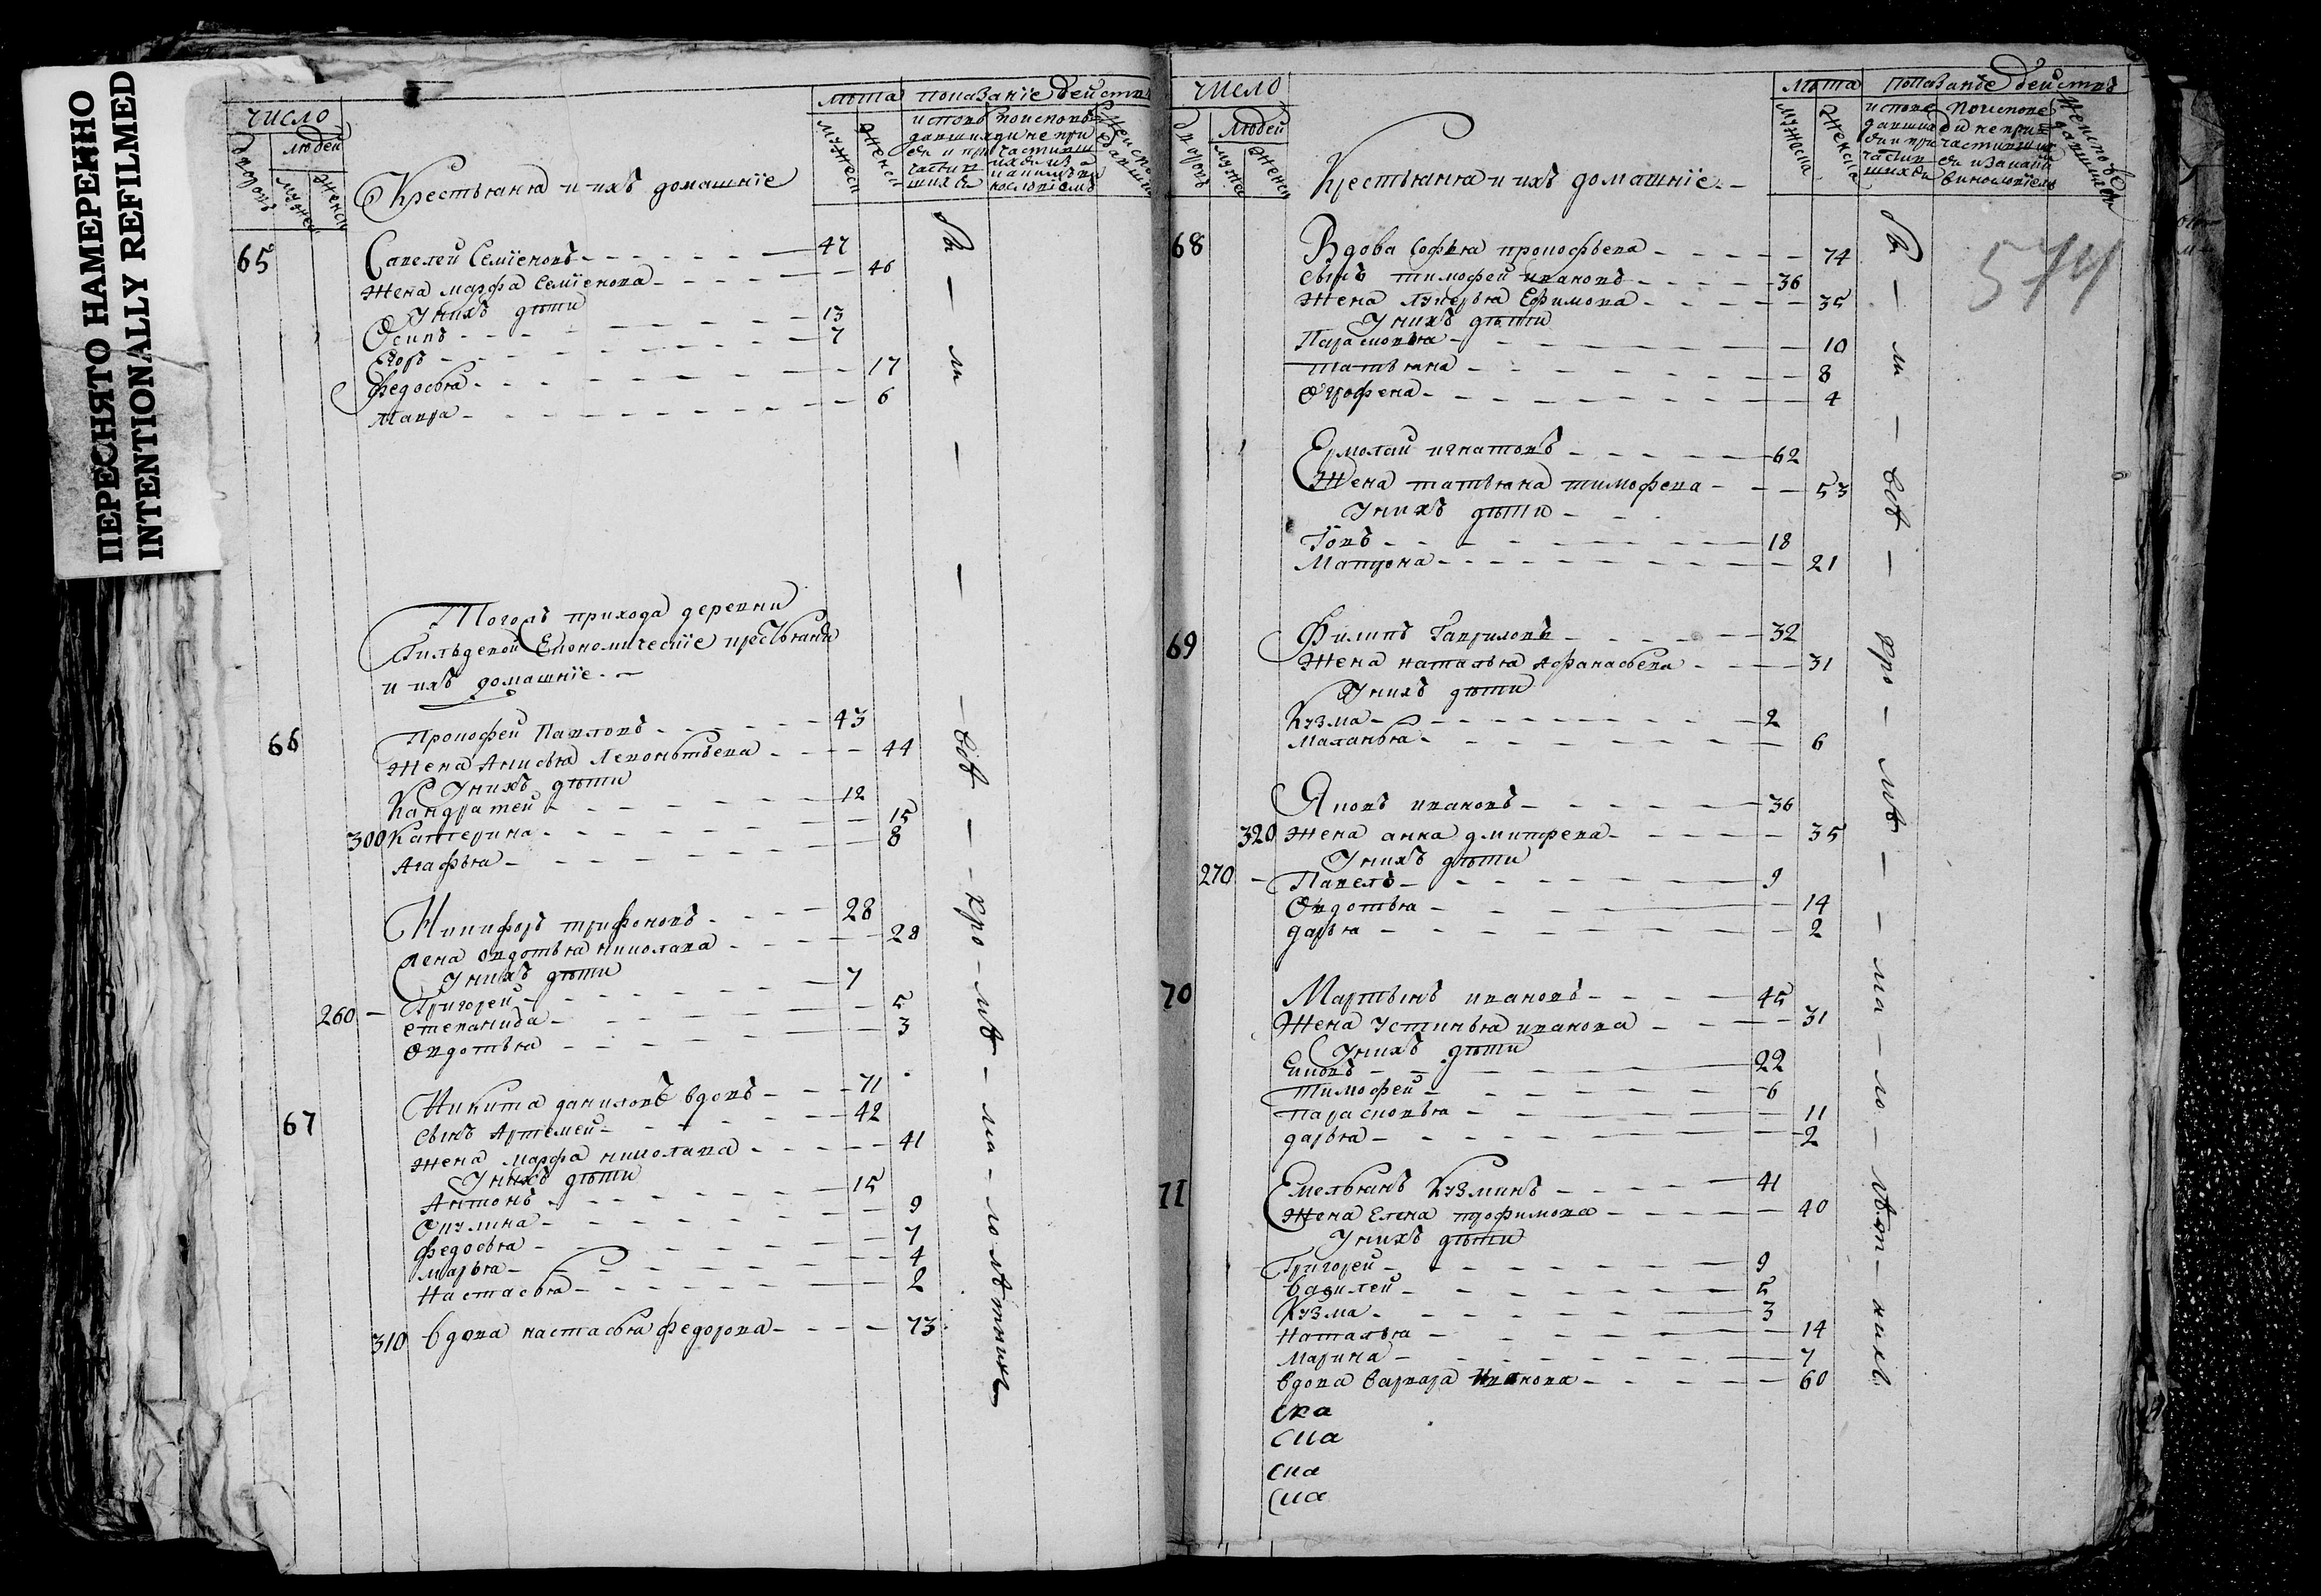 ПЕРЕСНЯТО НАМЕРЕННО
INTENTIONALLY REFILMED
число
людей
дворовъ
мужес
женск
Крестьяна и ихъ домашнїе
лѣта
мужеск
женск
показанїе действ
65
Савелей Семїеновъ 47
жена марфа Семїенова 46
У нихъ дѣти
Осипъ 13
Егоръ 7
Федосья 17
Мавра 6
Тогожъ прихода деревни
Економическїе крестьяна
и ихъ домашнїе
66
Прокофей Павловъ 43
жена Анисья Леконьтьева 44
У нихъ дѣти
Кандратей 12
300 Катерина 15
Агафья 8
Никифоръ трифоновъ 28
жена Овдотья николава 28
У нихъ дѣти
260 Григорей 7
степанида 5
Овдотья 3
67
Никита даниловъ вдовъ 71
сынъ Артемей 42
жена марфа николава 41
У нихъ дѣти
Антонъ 15
Окулина 9
федосья 7
марья 4
Настасья 2
310 вдова настасья федорова 73
число
людей
дворовъ
мужес
женск
Крестьяна и ихъ домашнїе
лѣта
мужеска
женска
показанїе действ
574
68
Вдова Софья прокофьева 74
сынъ тимофей ивановъ 36
жена Лукерья Ефимова 35
У нихъ дѣти
Парасковья 10
татьяна 8
Огрофена 4
Ермолай игнатовъ 62
жена татьяна тимофева 53
У нихъ дѣти
Їовъ 18
Матрона 21
69
Филипъ Гавриловъ 32
жена наталья Афанасьева 31
У нихъ дѣти
Кузма 2
Маланья 6
Яковъ ивановъ 36
320 жена анна дмитрева 35
У нихъ дѣти
270 Павелъ 9
Овдотья 14
дарья 2
70
Мартынъ ивановъ 45
жена Устинья иванова 31
У нихъ дѣти
22
Тимофей 6
парасковья 11
дарья 2
71
Емельянъ Кузминъ 41
жена Елена трофимова 40
У нихъ дѣти
Григорей 9
василей 5
Кузма 3
Наталья 14
Марина 7
вдова варвара Иванова 60